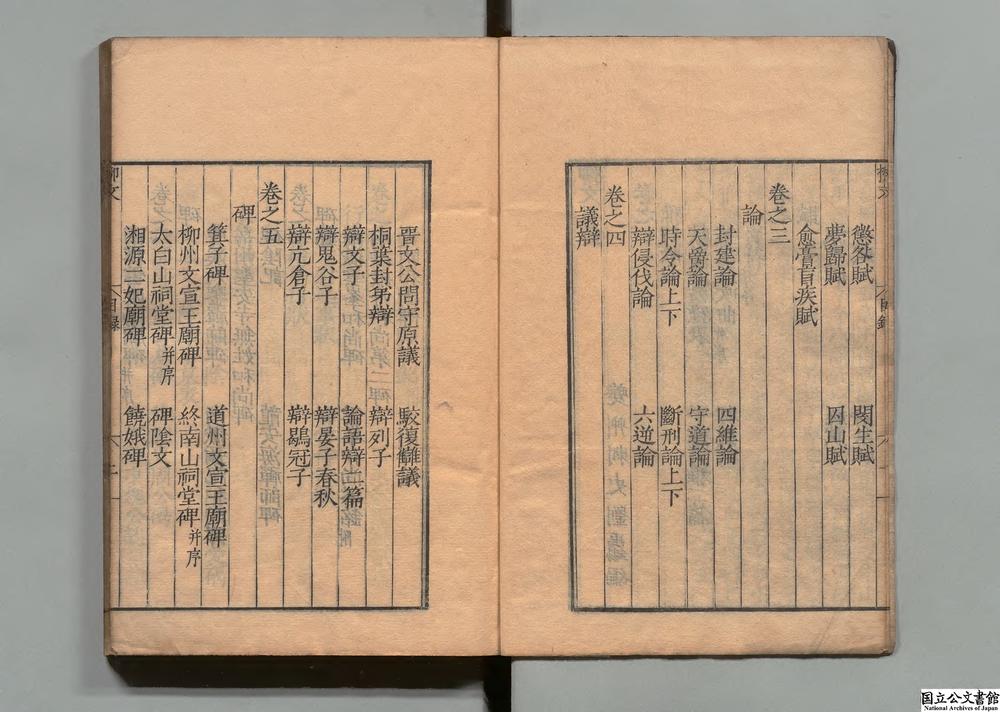 懲咎賦 閔生賦
夢歸賦 囚山賦
愈膏肓疾賦
卷之三
論
封建論 四維論
天爵論 守道論
時令論上下 斷刑論上下
辯侵伐論 六逆論
卷之四
議辯
晉文公問守原議 駮復讎議
桐葉封弟辯 辯列子
辯文子 論語辯二篇
辯鬼谷子 辯晏子春秋
辯亢倉子 辯鶡冠子
卷之五
碑
箕子碑 道州文宣王廟碑
柳州文宣王廟碑 終南山祠堂碑并序
太白山祠堂碑并序 碑陰文
湘源二妃廟碑 饒娥碑
柳文 目錄
国立公文書館
National Archives of Japan